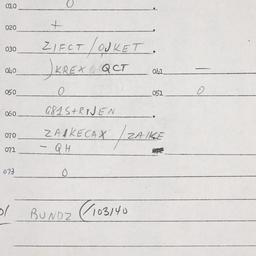 010 0
020 +
030 ZIFCT / OJKET
040 )KREX QCT 041 —
050 0 051 0
060 G81S+RIJEN
070 ZAIKECAX / ZAIKE
071 - QH
073 0
BUNDZ (/103/40